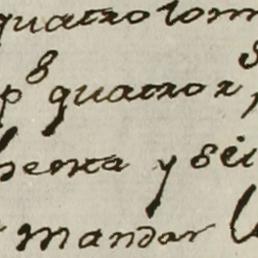 quatro tom
p⁸ quatro r⁸
henta y sei
mandar